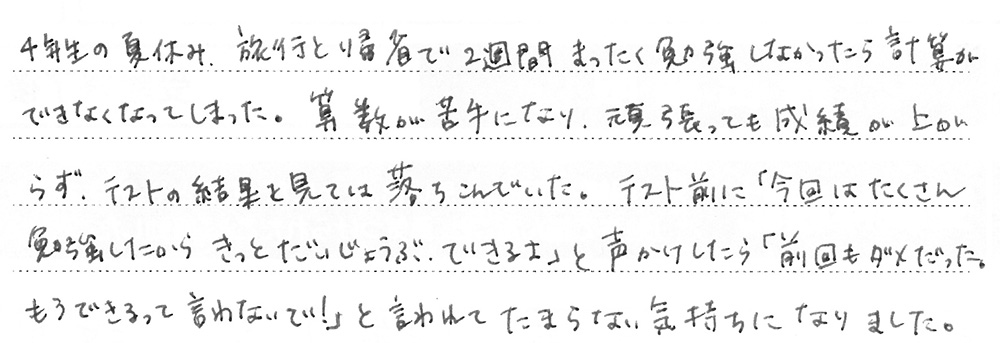 4年生の夏休み、旅行と帰省で2週間まったく勉強しなかったら計算が
できなくなってしまった。算数が苦手になり、頑張っても成績が上が
らず、テストの結果を見ては落ちこんでいた。テスト前に「今回はたくさん
勉強したから きっとだいじょうぶ、できるよ」と声かけしたら「前回もダメだった。
もうできるって言わないで!」と言われてたまらない気持ちになりました。